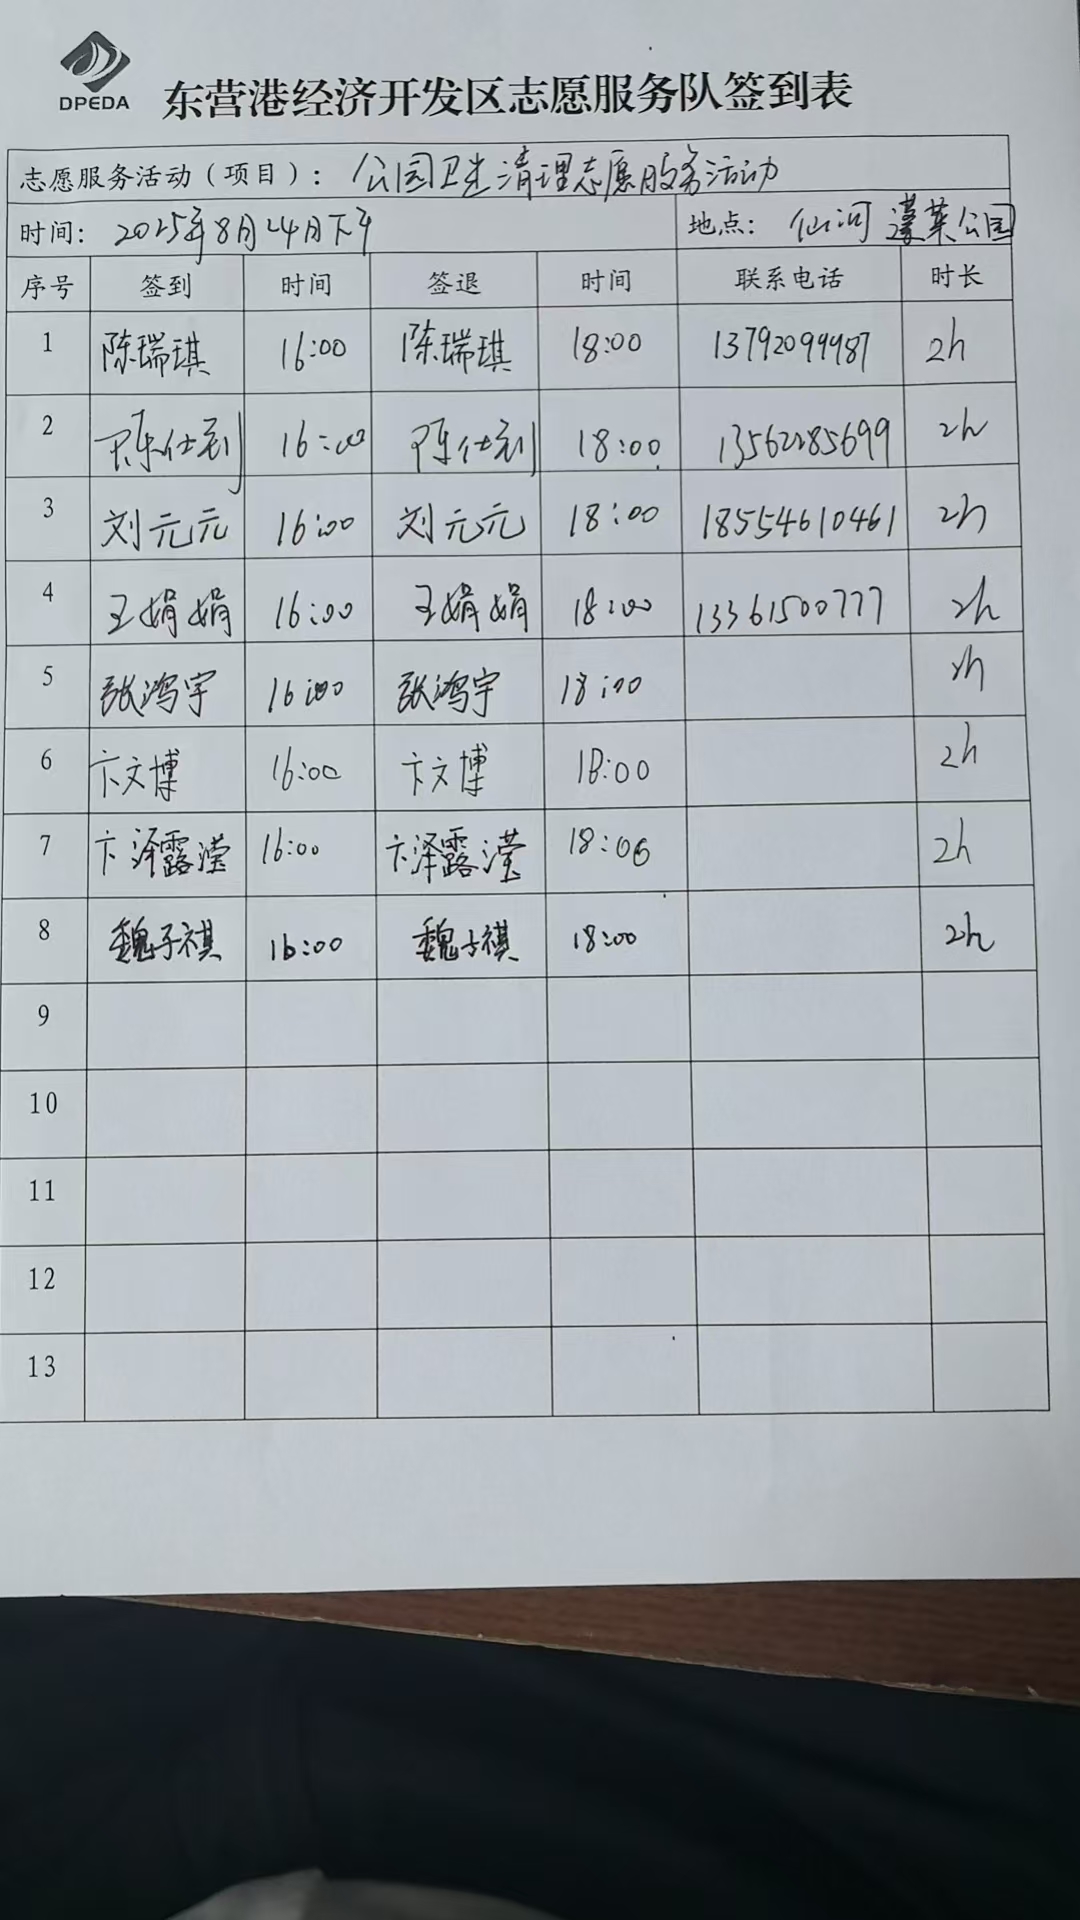 DPEDA
东营港经济开发区志愿服务队签到表
志愿服务活动（项目）：公园卫生清理志愿服务活动
时间：2025年8月24日下午 地点：仙河 蓬莱公园
序号 签到 时间 签退 时间 联系电话 时长
1 陈瑞琪 16:00 陈瑞琪 18:00 13792099987 2h
2 陈仕彩 16:00 陈仕彩 18:00 13562285699 2h
3 刘元元 16:00 刘元元 18:00 18554610461 2h
4 王娟娟 16:00 王娟娟 18:00 13361500777 2h
5 张鸿宇 16:00 张鸿宇 18:00 2h
6 卞文博 16:00 卞文博 18:00 2h
7 卞泽露滢 16:00 卞泽露滢 18:00 2h
8 魏子祺 16:00 魏子祺 18:00 2h
9
10
11
12
13